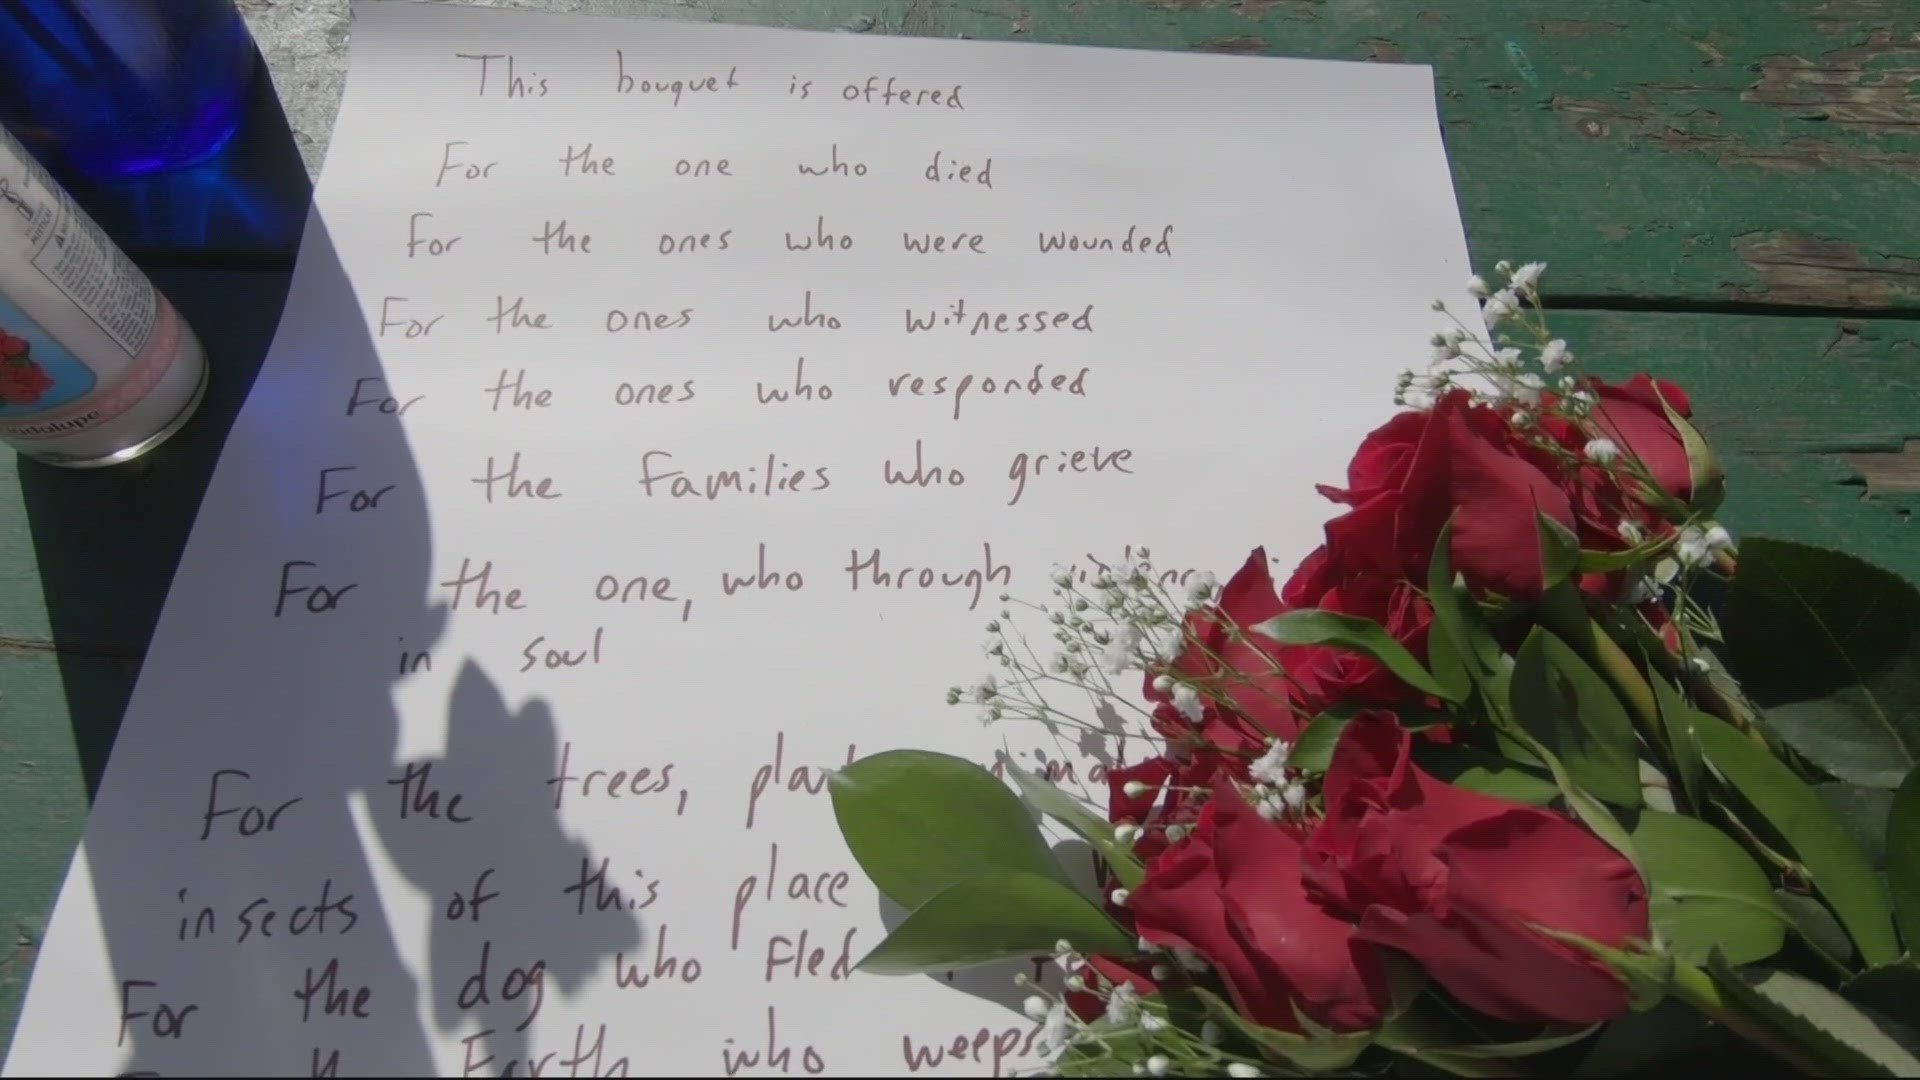 This bouquet is offered
For the one who died
For the ones who were wounded
For the ones who witnessed
For the ones who responded
For the families who grieve
For the one, who through
in soul
For the trees,
insects of this place
For the dog who fled
Earth who weeps